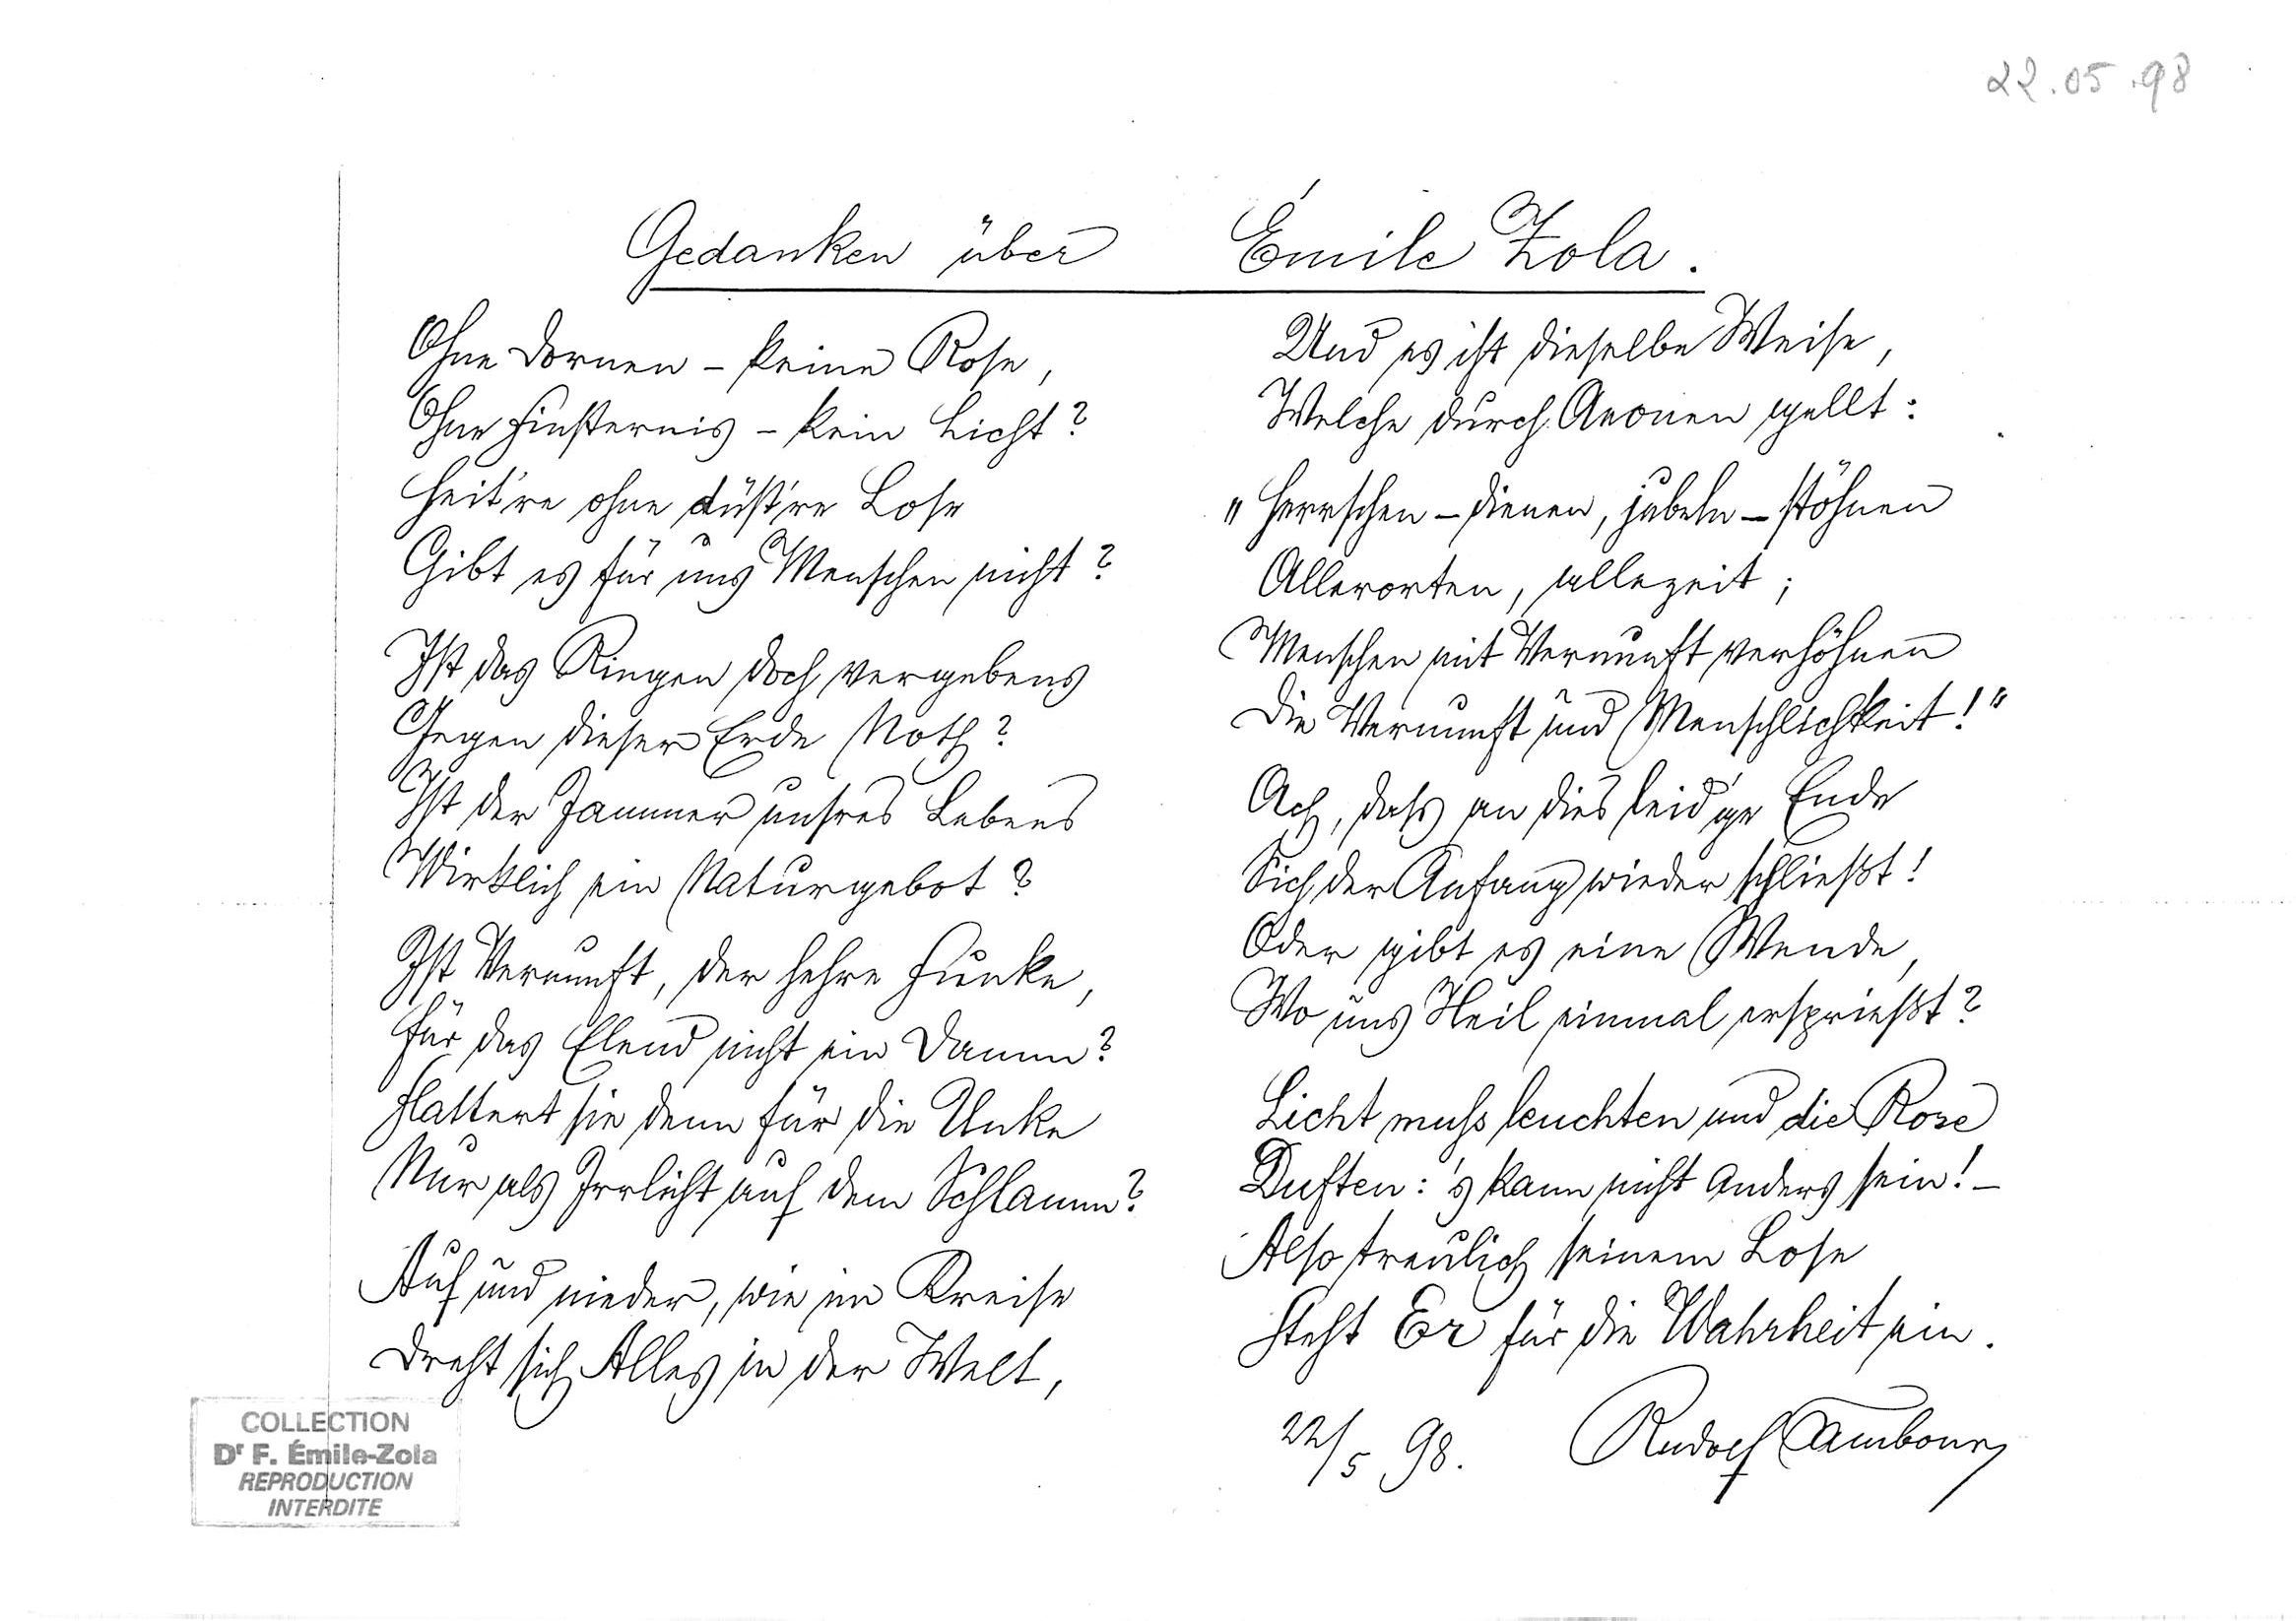 22.05.98
Gedanken über Émile Zola.
Ohne Dornen – keine Rose,
Ohne Finsternis – kein Licht?
Heit're ohne düst're Lose
Gibt es für uns Menschen nicht?
Ist das Ringen doch vergebens
Gegen dieser Erde Noth?
Ist der Jammer unsres Lebens
Wirklich ein Naturgebot?
Ist Vernunft, der hehre Funke,
Für das Elend nicht ein Damm?
Flattert sie denn für die Unke
Nur als Irrlicht auf dem Schlamm?
Auf und nieder, wie im Kreise
Dreht sich Alles in der Welt,
Und es ist dieselbe Weise,
Welche durch Aeonen gellt:
„Herrschen – dienen, jubeln – stöhnen
Allerorten, allezeit;
Menschen mit Vernunft verhöhnen
Die Vernunft und Menschlichkeit!"
Ach, dass an dies leid'ge Ende
Sich der Anfang wieder schließt!
Oder gibt es eine Wende,
Wo uns Heil einmal ersprießt?
Licht muss leuchten und die Rose
Duften: 's kann nicht anders sein! –
Also treulich seinem Lose
Steht Er für die Wahrheit ein.
22/5 98. Rudolf Tambour
COLLECTION
Dr F. Émile-Zola
REPRODUCTION
INTERDITE